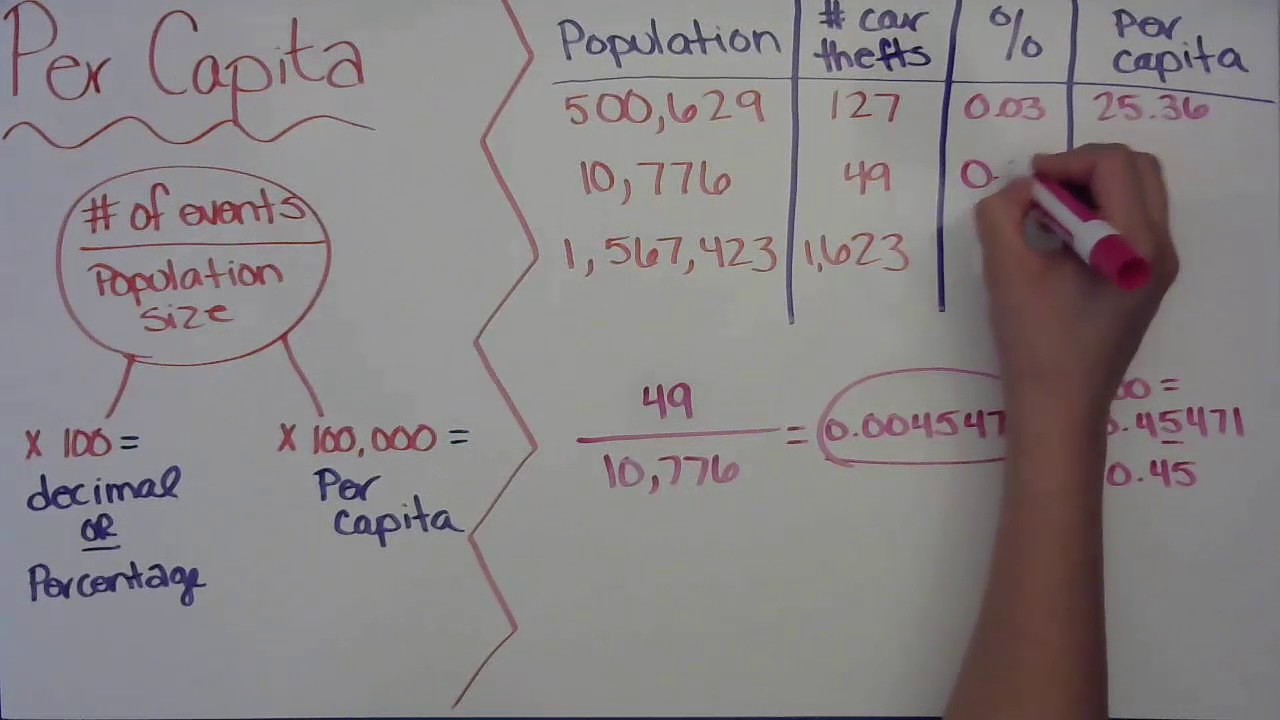 Per Capita
# of events
Population
size
x 100 =
decimal
OR
Percentage
x 100,000 =
Per
capita
Population # car thefts % Per capita
500,629 127 0.03 25.36
10,776 49 0.
1,567,423 1,623
49
10,776
= 0.004547
00 =
0.45471
0.45